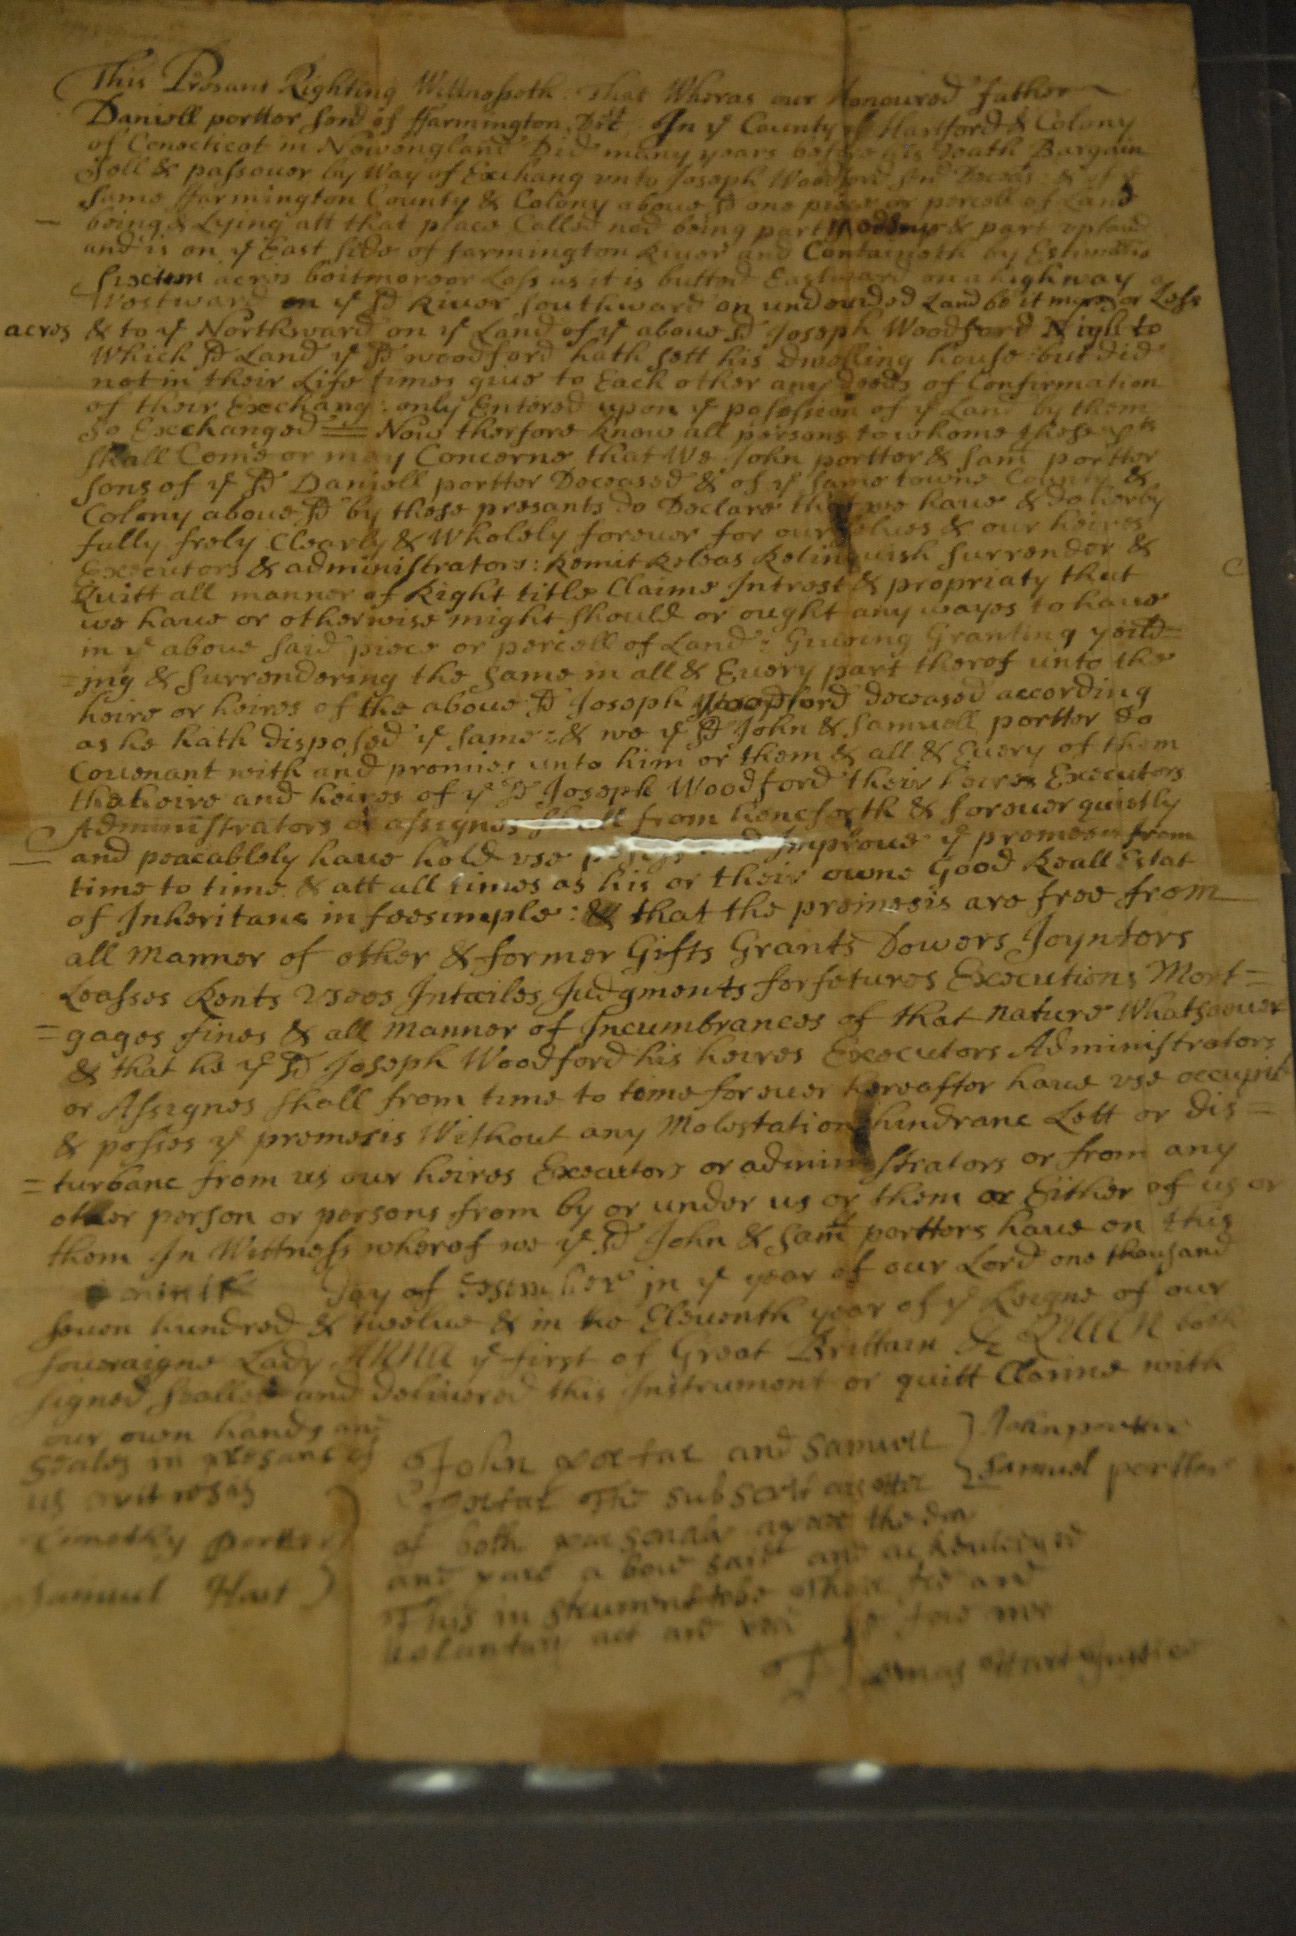 This Presant Righting Wittnesseth : that Wheras our Honoured father
Daniell portter send of ffarmington In yͤ County of Hartford & Colony
of Conecticot in Newengland Did many years before his Death Bargain
Sell & passover by Way of Exchang vnto Joseph Woodford Deceds &
same ffarmington County & Colony above sd one piece or percell of Land
being & Lying att that place Called nod being part & part upland
and is on yͤ East side of farmington River and Containeth by Estimatio
sixteen acres beitmoreor Less as it is butted Eastward on a highway
Westward on yͤ sd River southward on undevided Land be it more or Less
acres & to yͤ Northward on yͤ Land of yͤ above sd Joseph Woodford Nigh to
Which sd Land yͤ sd woodford hath sett his dwelling house but did
not in their Life times give to Each other any deeds of Confirmation
of their Exchang : only Entered upon yͤ posession of yͤ Land by them
So Exchanged = Now therfore know all persons to whome these psts
shall Come or may Concerne that We John portter & Sam portter
sons of yͤ sd Daniell portter Deceased & of yͤ same towne County &
Colony above sd by these presants do Declare that we have & do herby
fully frely Clearly & Wholely forever for our selves & our heires
Executors & administrators : Remit Releas Relinquish surrender &
Quitt all manner of Right title Claime Intrest & propriaty that
we have or otherwise might should or ought any wayes to have
in yͤ above said piece or percell of Land : Giveing Granting yeild=
=ing & surrendering the same in all & Every part therof unto the
heire or heires of the above sd Joseph Woodford deceased according
as he hath disposed yͤ same : & we yͤ sd John & Samuell portter do
Covenant with and promies unto him or them & all & Every of them
the heire and heires of yͤ sd Joseph Woodford their heires Executors
Administrators or assignes shall from henceforth & forever quietly
and peacablely have hold vse Improve yͤ premeses from
time to time & att all times as his or their owne Good Reall Estat
of Inheritanc in feesimple : & that the premiesis are free from
all Manner of other & former Gifts Grants Dowers Joynters
Leasses Rents Vsees Intailes Judgments forfetures Executions Mort=
=gages fines & all Manner of Incumbrances of that nature Whatsoever
& that he yͤ sd Joseph Woodford his heires Executors Administrators
or Assignes shall from time to teme for ever hereafter have vse occupie
& posses yͤ premesis Without any Molestation hindranc Lett or dis=
=turbanc from us our heires Executors or administrators or from any
other person or persons from by or under us or them or Either of us or
them In Wittness wherof we yͤ sd John & Sam portters have on this
day of Desember in yͤ year of our Lord one thousand
seven hundred & twelve & in the Eleventh year of yͤ Reigne of our
soveraigne Lady ANNA yͤ first of Great Brittain &c QUEEN both
signed sealled and delivered this Instrument or quitt Claime with
our own hands and
seales in presanc of
us witneses
Timothy portter
Samuel Hart
John portar and Samuell
portar The subscribars
of both parsonaly apear the day
and year a bove said and acknoledged
This instrument to be Their fre and
voluntary act and deed be fore mee
Thomas Hart Justice
John porter
Samuel portter